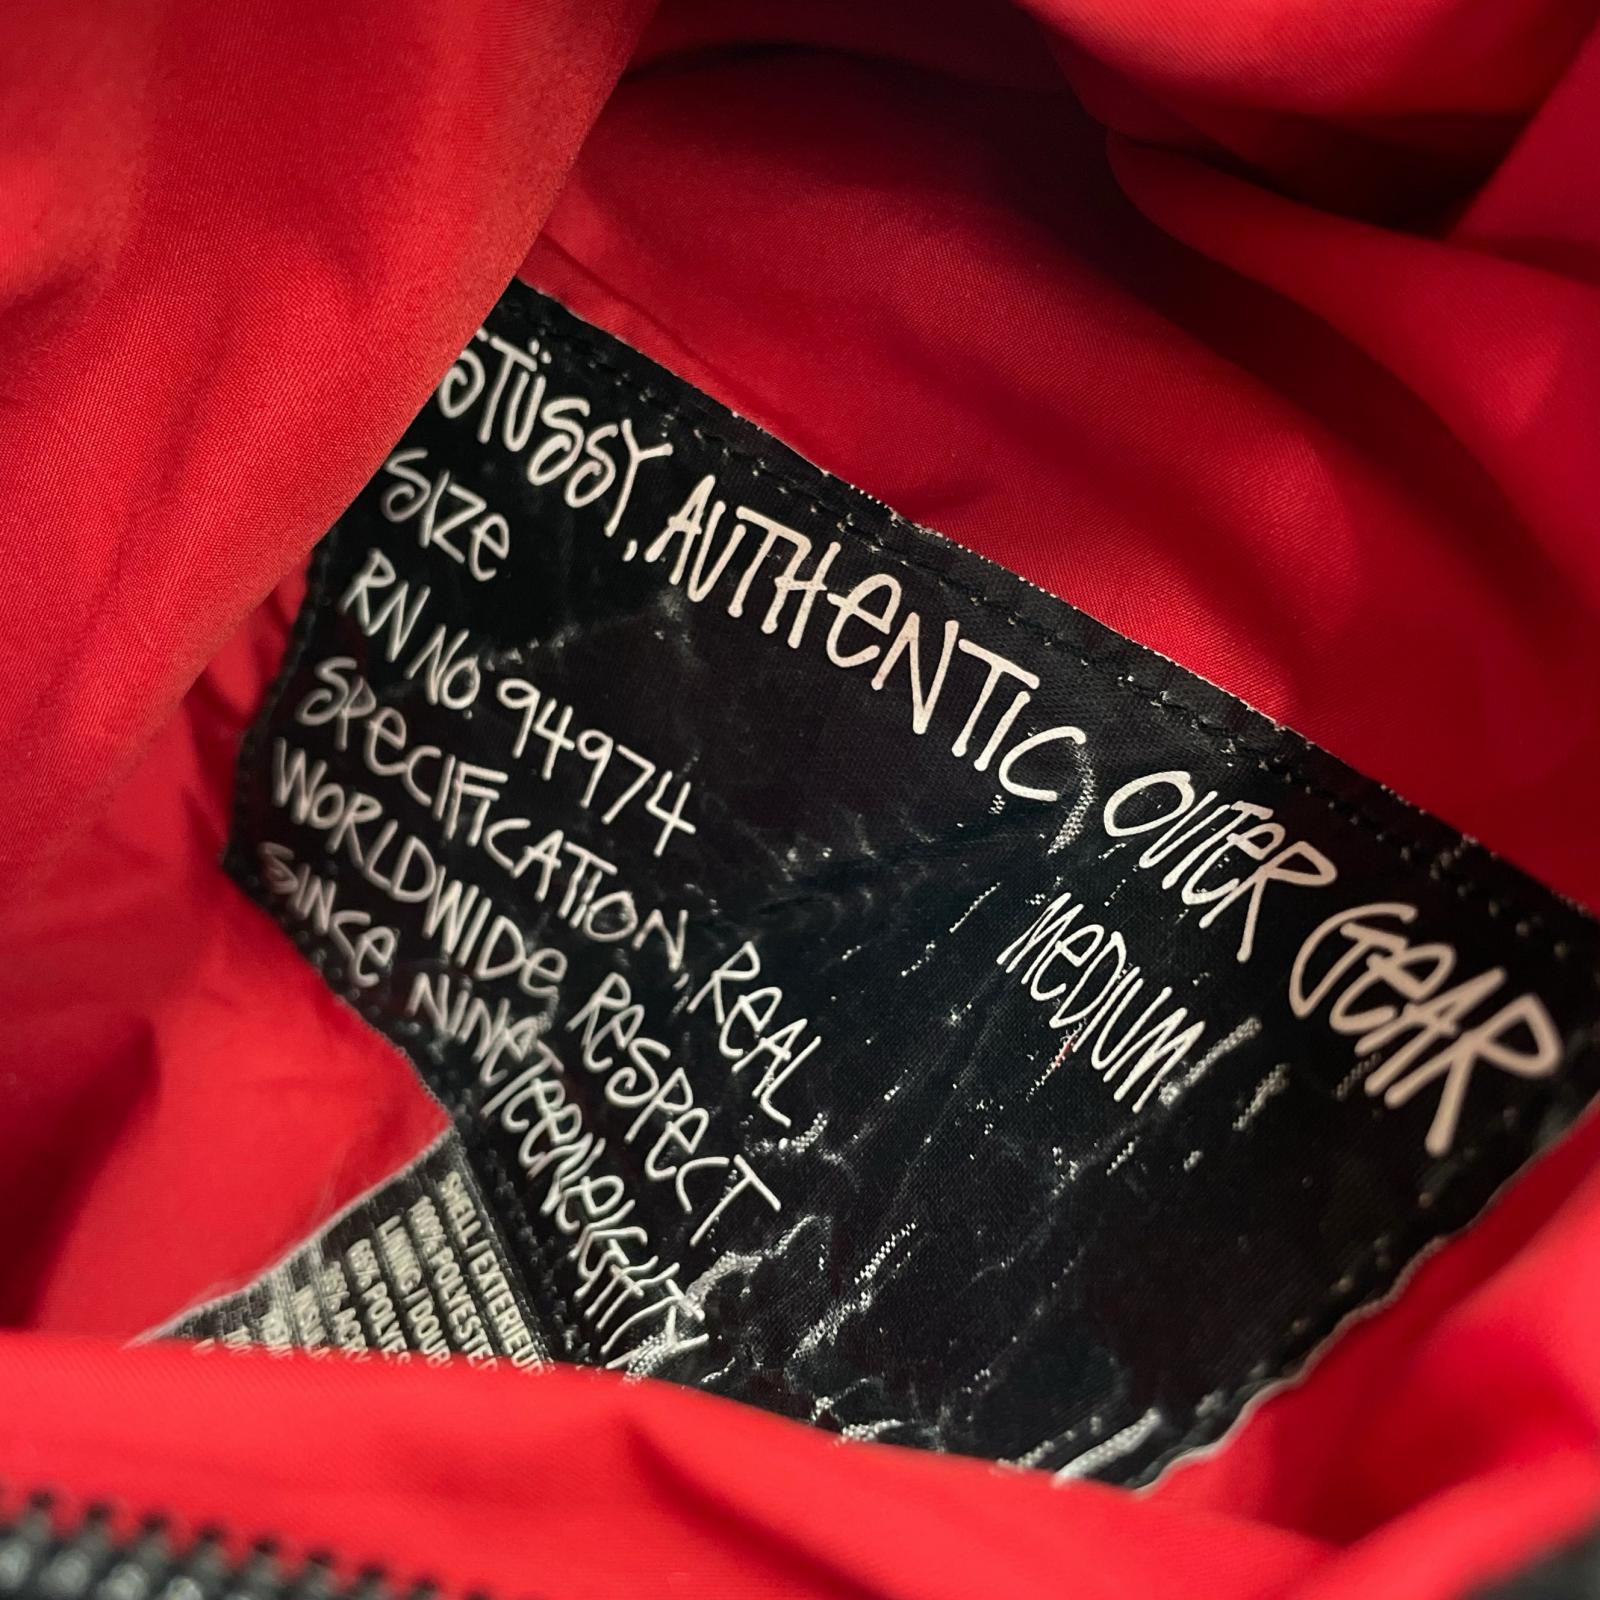 STÜSSY, AUTHENTIC OUTER GEAR
SIZE MEDIUM
RN NO. 94974
SPECIFICATION, REAL
WORLDWIDE RESPECT
SINCE NINETEENEIGHTY
SHELL / EXTERIEUR
100% POLYESTER
LINING / DOUBL
POLYES
ACRY
INSUL